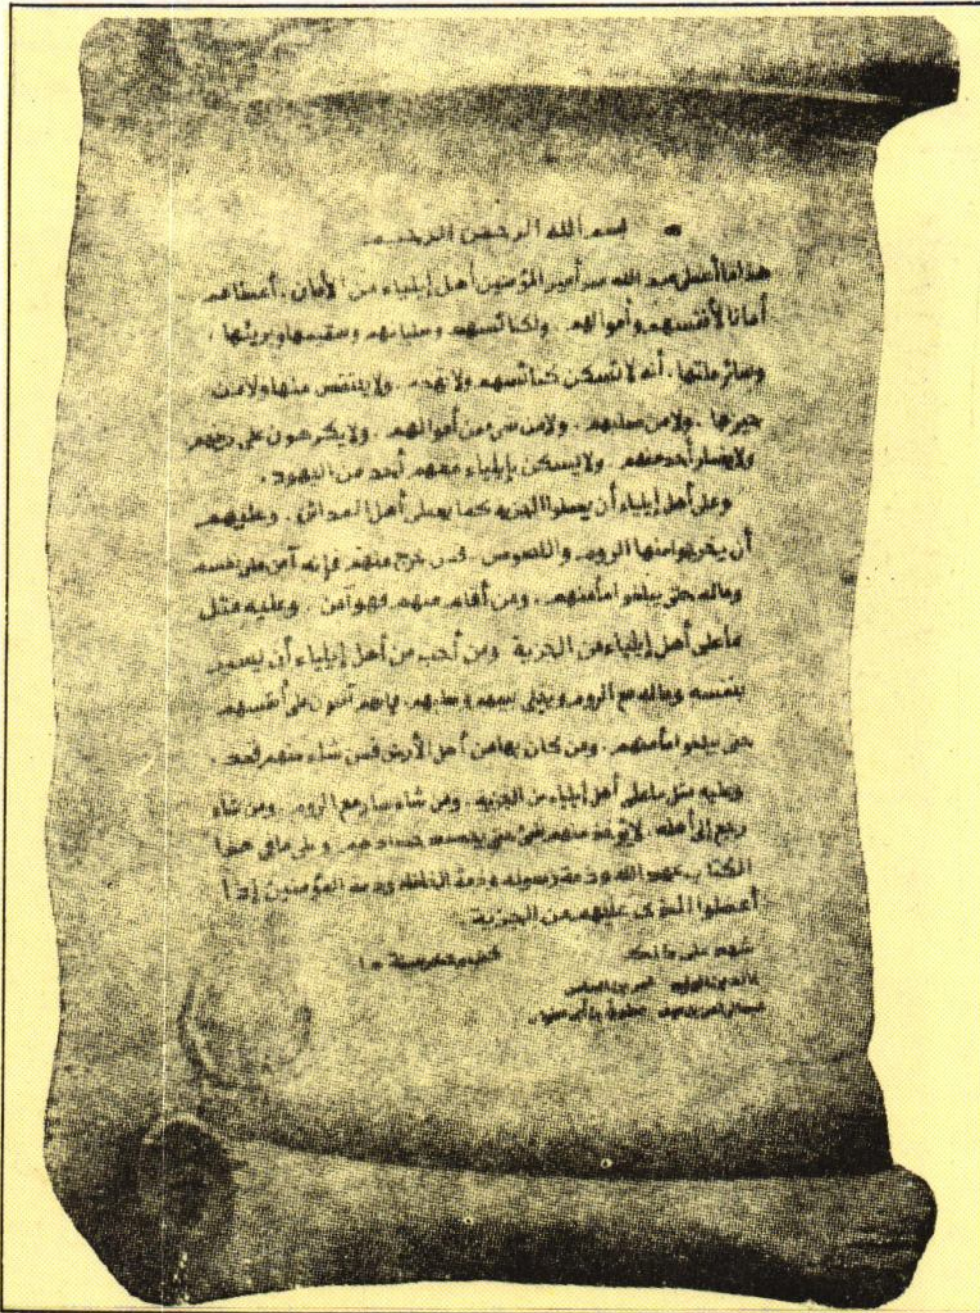 بسم الله الرحمن الرحيم
هذا ما أعطى عبد الله عمر أمير المؤمنين أهل إيلياء من الأمان . أعطاهم
أمانا لأنفسهم وأموالهم . ولكنائسهم وصلبانهم وسقيمها وبريئها ،
وسائر ملتها . أنه لا تسكن كنائسهم ولا تهدم . ولا ينتقص منها ولا من
حيزها . ولا من صليبهم . ولا من شيء من أموالهم . ولا يكرهون على دينهم
ولا يضار أحد منهم . ولا يسكن بإيلياء معهم أحد من اليهود .
وعلى أهل إيلياء أن يعطوا الجزية كما يعطى أهل المدائن . وعليهم
أن يخرجوا منها الروم واللصوص . فمن خرج منهم فإنه آمن على نفسه
وماله حتى يبلغوا مأمنهم . ومن أقام منهم فهو آمن . وعليه مثل
ما على أهل إيلياء من الجزية ومن أحب من أهل إيلياء أن يسير
بنفسه وماله مع الروم ويخلى بيعهم وصلبهم . فإنهم آمنون على أنفسهم
حتى يبلغوا مأمنهم . ومن كان بها من أهل الأرض فمن شاء منهم قعد .
وعليه مثل ما على أهل إيلياء من الجزية . ومن شاء سار مع الروم . ومن شاء
رجع إلى أهله . لا يؤخذ منهم شئ حتى يحصد حصادهم . وعلى ما في هذا
الكتاب عهد الله وذمة رسوله وذمة الخلفاء وذمة المؤمنين إذا
أعطوا الذى عليهم من الجزية .
شهد على ذلك
خالد بن الوليد عمرو بن العاص
عبد الرحمن بن عوف معاوية بن أبي سفيان